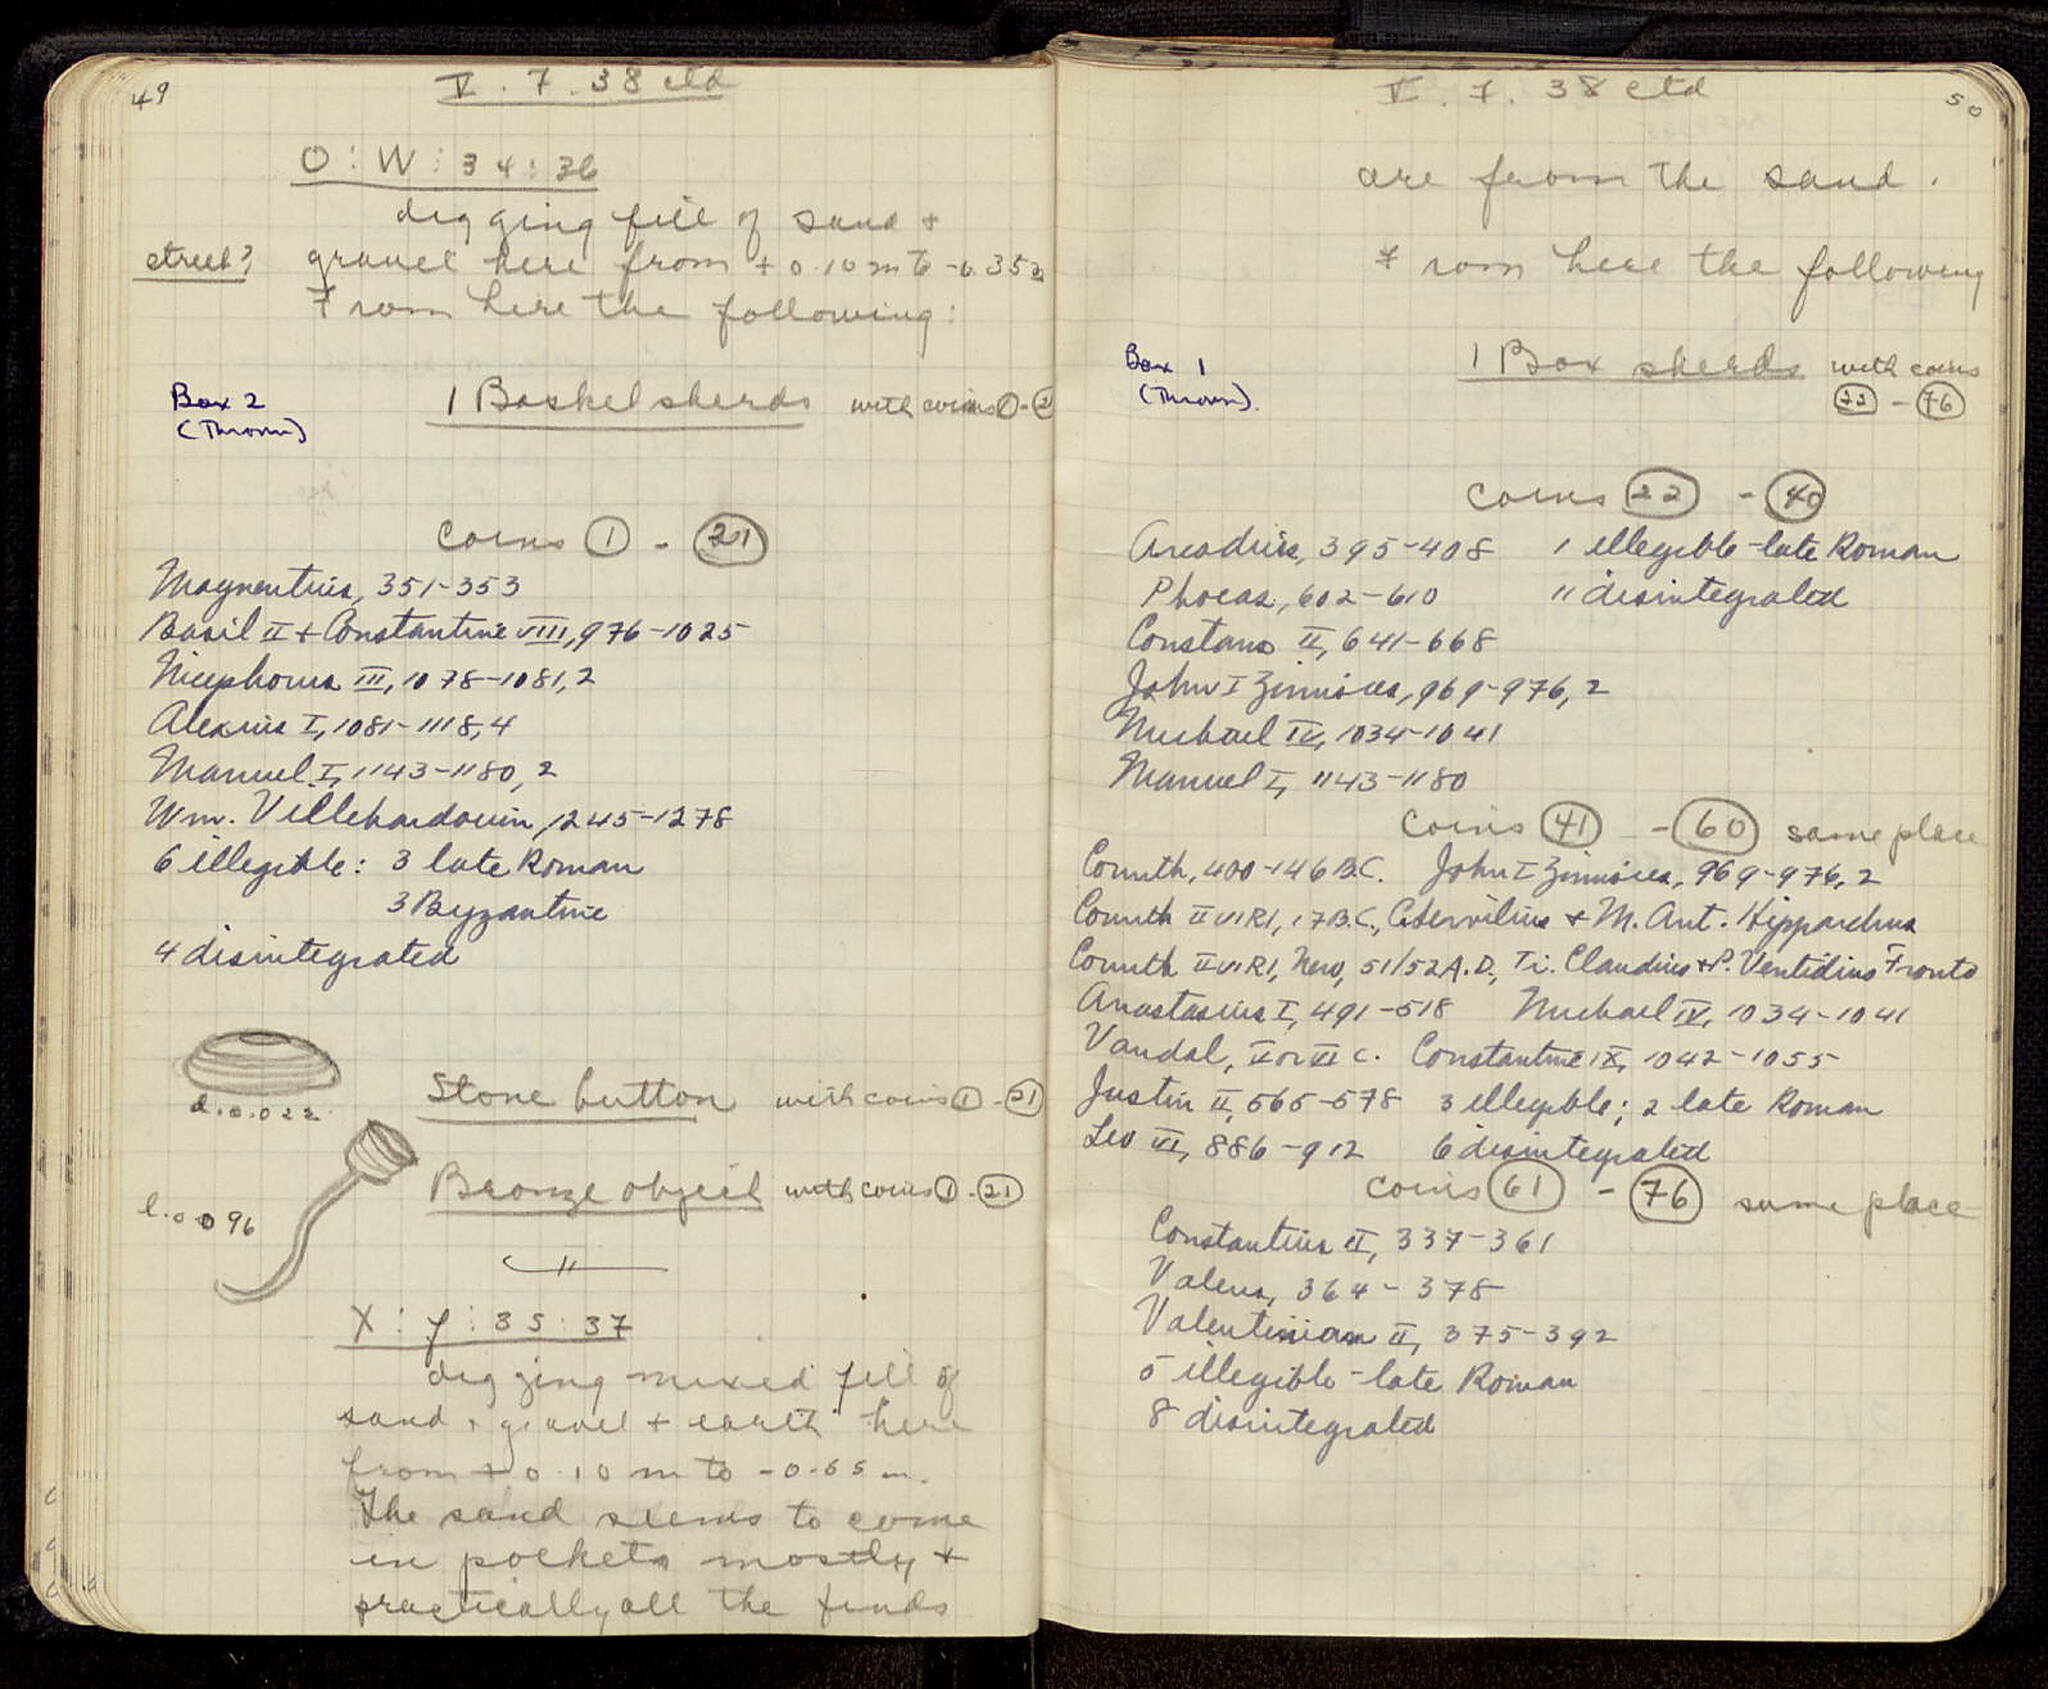 49
V . 7 . 38 ctd
O : W : 34 : 36
digging fill of sand +
street?
gravel here from + 0.10 m to -0.35 m
From here the following:
Box 2
(Thrown)
1 Basket sherds with coins 1 - 2
coins 1 - 21
Magnentius, 351-353
Basil II + Constantine VIII, 976-1025
Nicephorus III, 1078-1081, 2
Alexius I, 1081-1118, 4
Manuel I, 1143-1180, 2
Wm. Villehardouin, 1245-1278
6 illegible: 3 late Roman
3 Byzantine
4 disintegrated
d. 0.022
Stone button with coins 1 - 21
l. 0.096
Bronze object with coins 1 - 21
X : Y : 35 : 37
digging mixed fill of
sand + gravel + earth here
from + 0.10 m to -0.65 m.
The sand seems to come
in pockets mostly +
practically all the finds
50
V . 7 . 38 ctd
are from the sand.
From here the following
Box 1
(Thrown).
1 Box sherds with coins
22 - 76
coins 22 - 40
Arcadius, 395-408 1 illegible-late Roman
Phocas, 602-610 11 disintegrated
Constans II, 641-668
John I Zimisces, 969-976, 2
Michael IV, 1034-1041
Manuel I, 1143-1180
coins 41 - 60 same place
Corinth, 400-146 B.C. John I Zimisces, 969-976, 2
Corinth IIVIRI, 17 B.C., C. Servilius + M. Ant. Hipparchus
Corinth IIVIRI, Nero, 51/52 A.D., Ti. Claudius + P. Ventidius Fronto
Anastasius I, 491-518 Michael IV, 1034-1041
Vandal, V or VI c. Constantine IX, 1042-1055
Justin II, 565-578 3 illegible; 2 late Roman
Leo VI, 886-912 6 disintegrated
coins 61 - 76 same place
Constantius II, 337-361
Valens, 364-378
Valentinian II, 375-392
5 illegible-late Roman
8 disintegrated